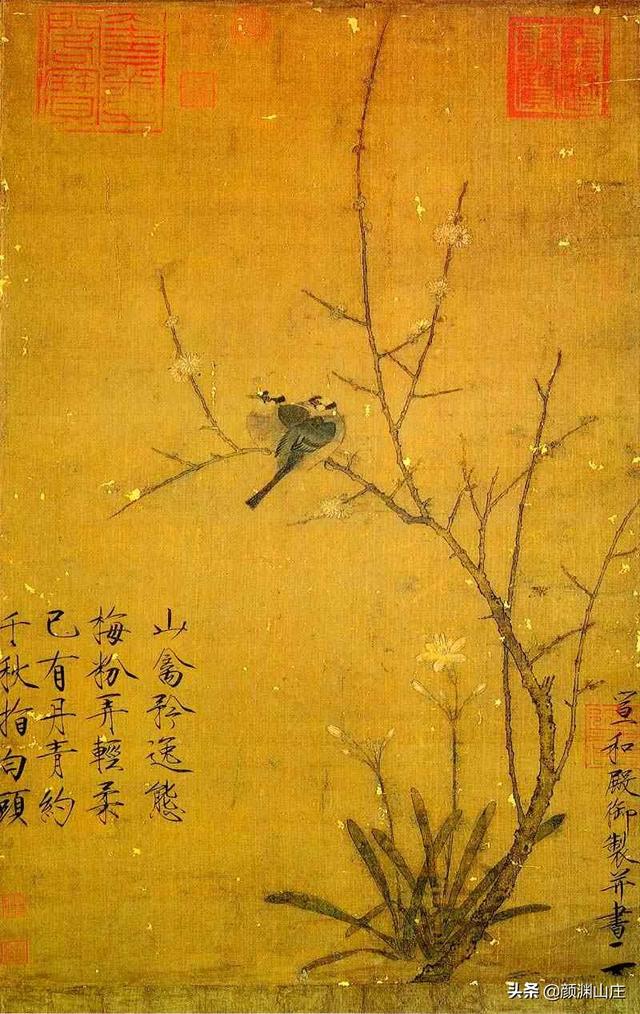 宣和殿御製并書
山禽矜逸態
梅粉弄輕柔
已有丹青約
千秋指白頭
头条 @颜渊山庄